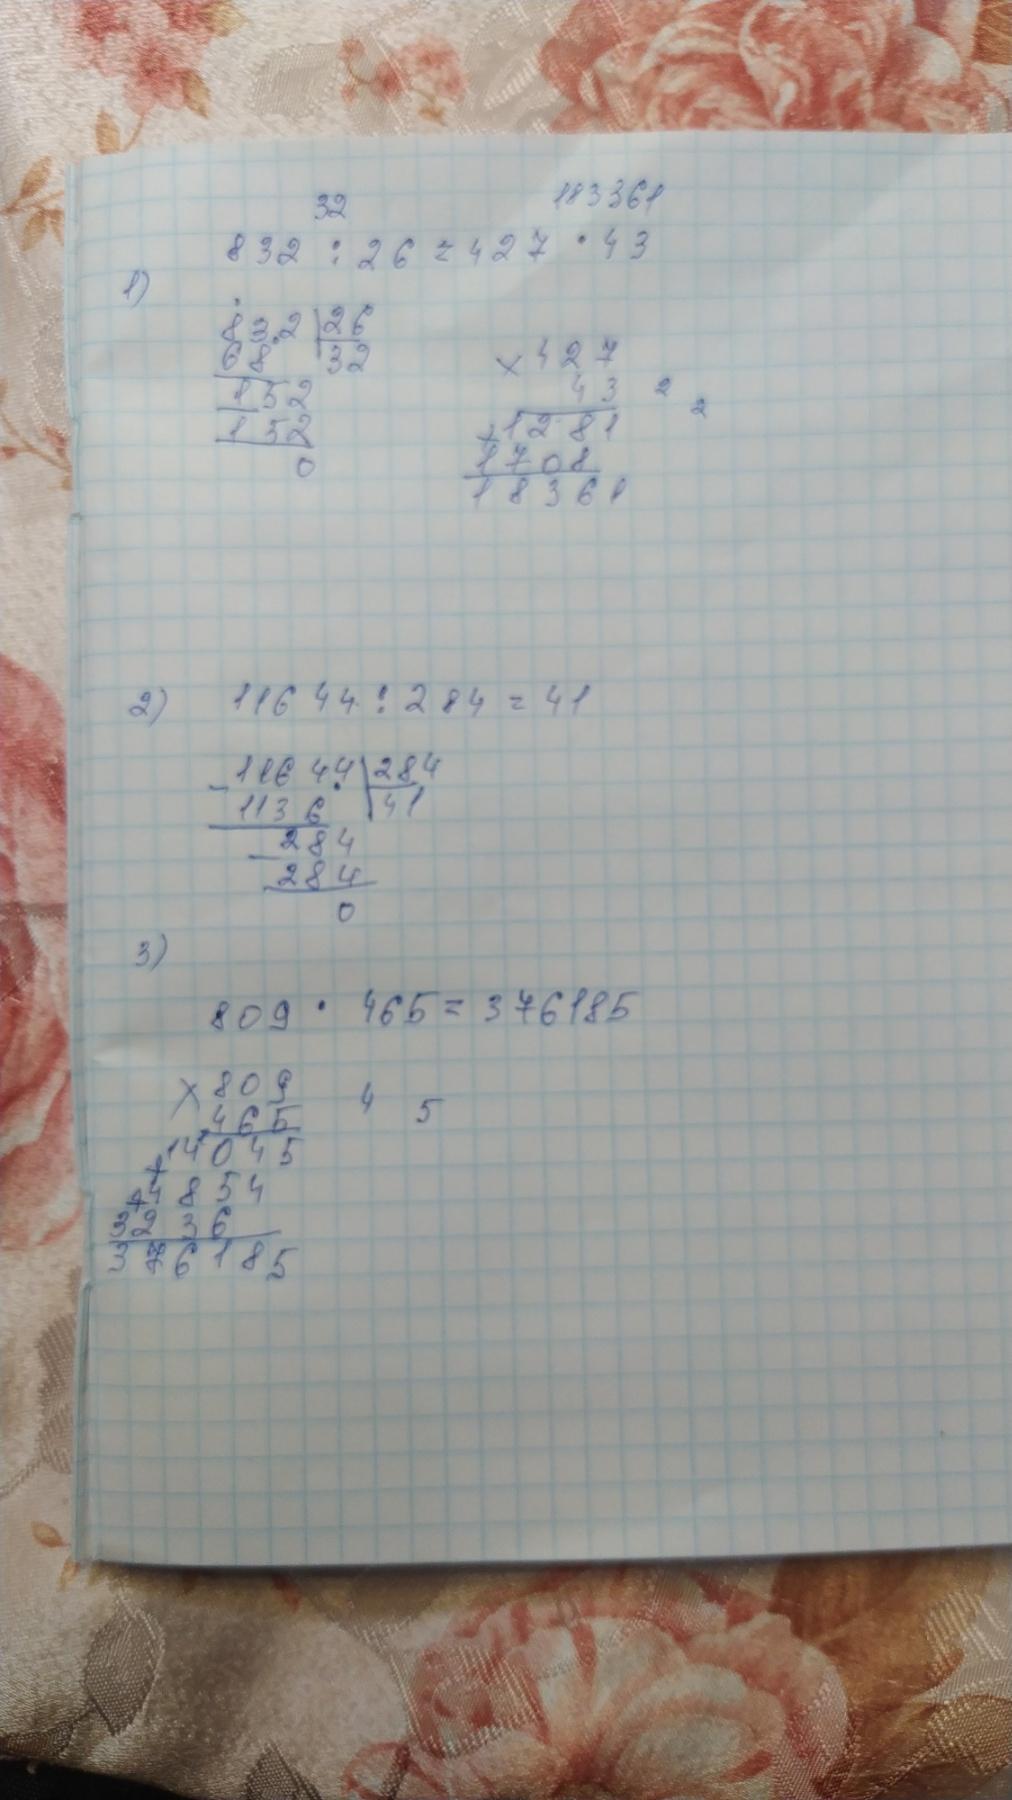 32 183361
832 : 26 = 427 · 43
1)
832 26
68 32
152
152
0
× 427
43 2 2
+1281
1708
18361
2) 11644 : 284 = 41
- 11644 284
1136 41
- 284
284
0
3)
809 · 465 = 376185
× 809
465 4 5
+14045
+4854
3236
376185